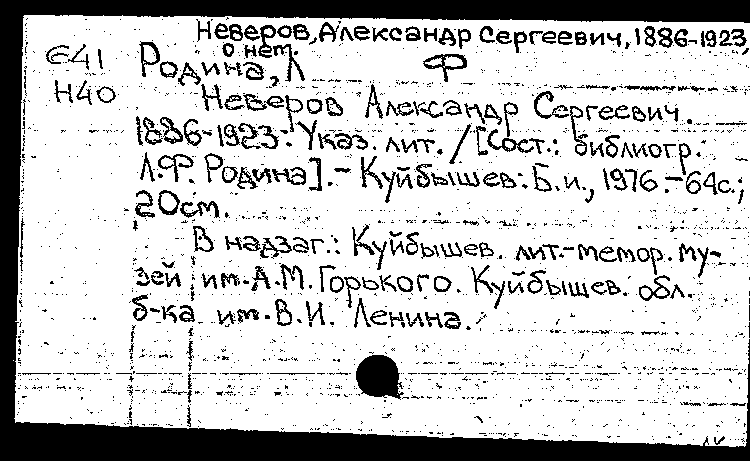 Неверов, Александр Сергеевич, 1886-1923
о нем.
Б41 Родина, Л Ф
Н40 Неверов Александр Сергеевич.
1886-1923: Указ. лит. / [Сост.: библиогр.
Л.Ф. Родина]. - Куйбышев: Б.и., 1976. - 64с.;
20см.
В надзаг.: Куйбышев. лит.-мемор. му-
зей им. А.М. Горького. Куйбышев. обл.
б-ка им. В.И. Ленина.